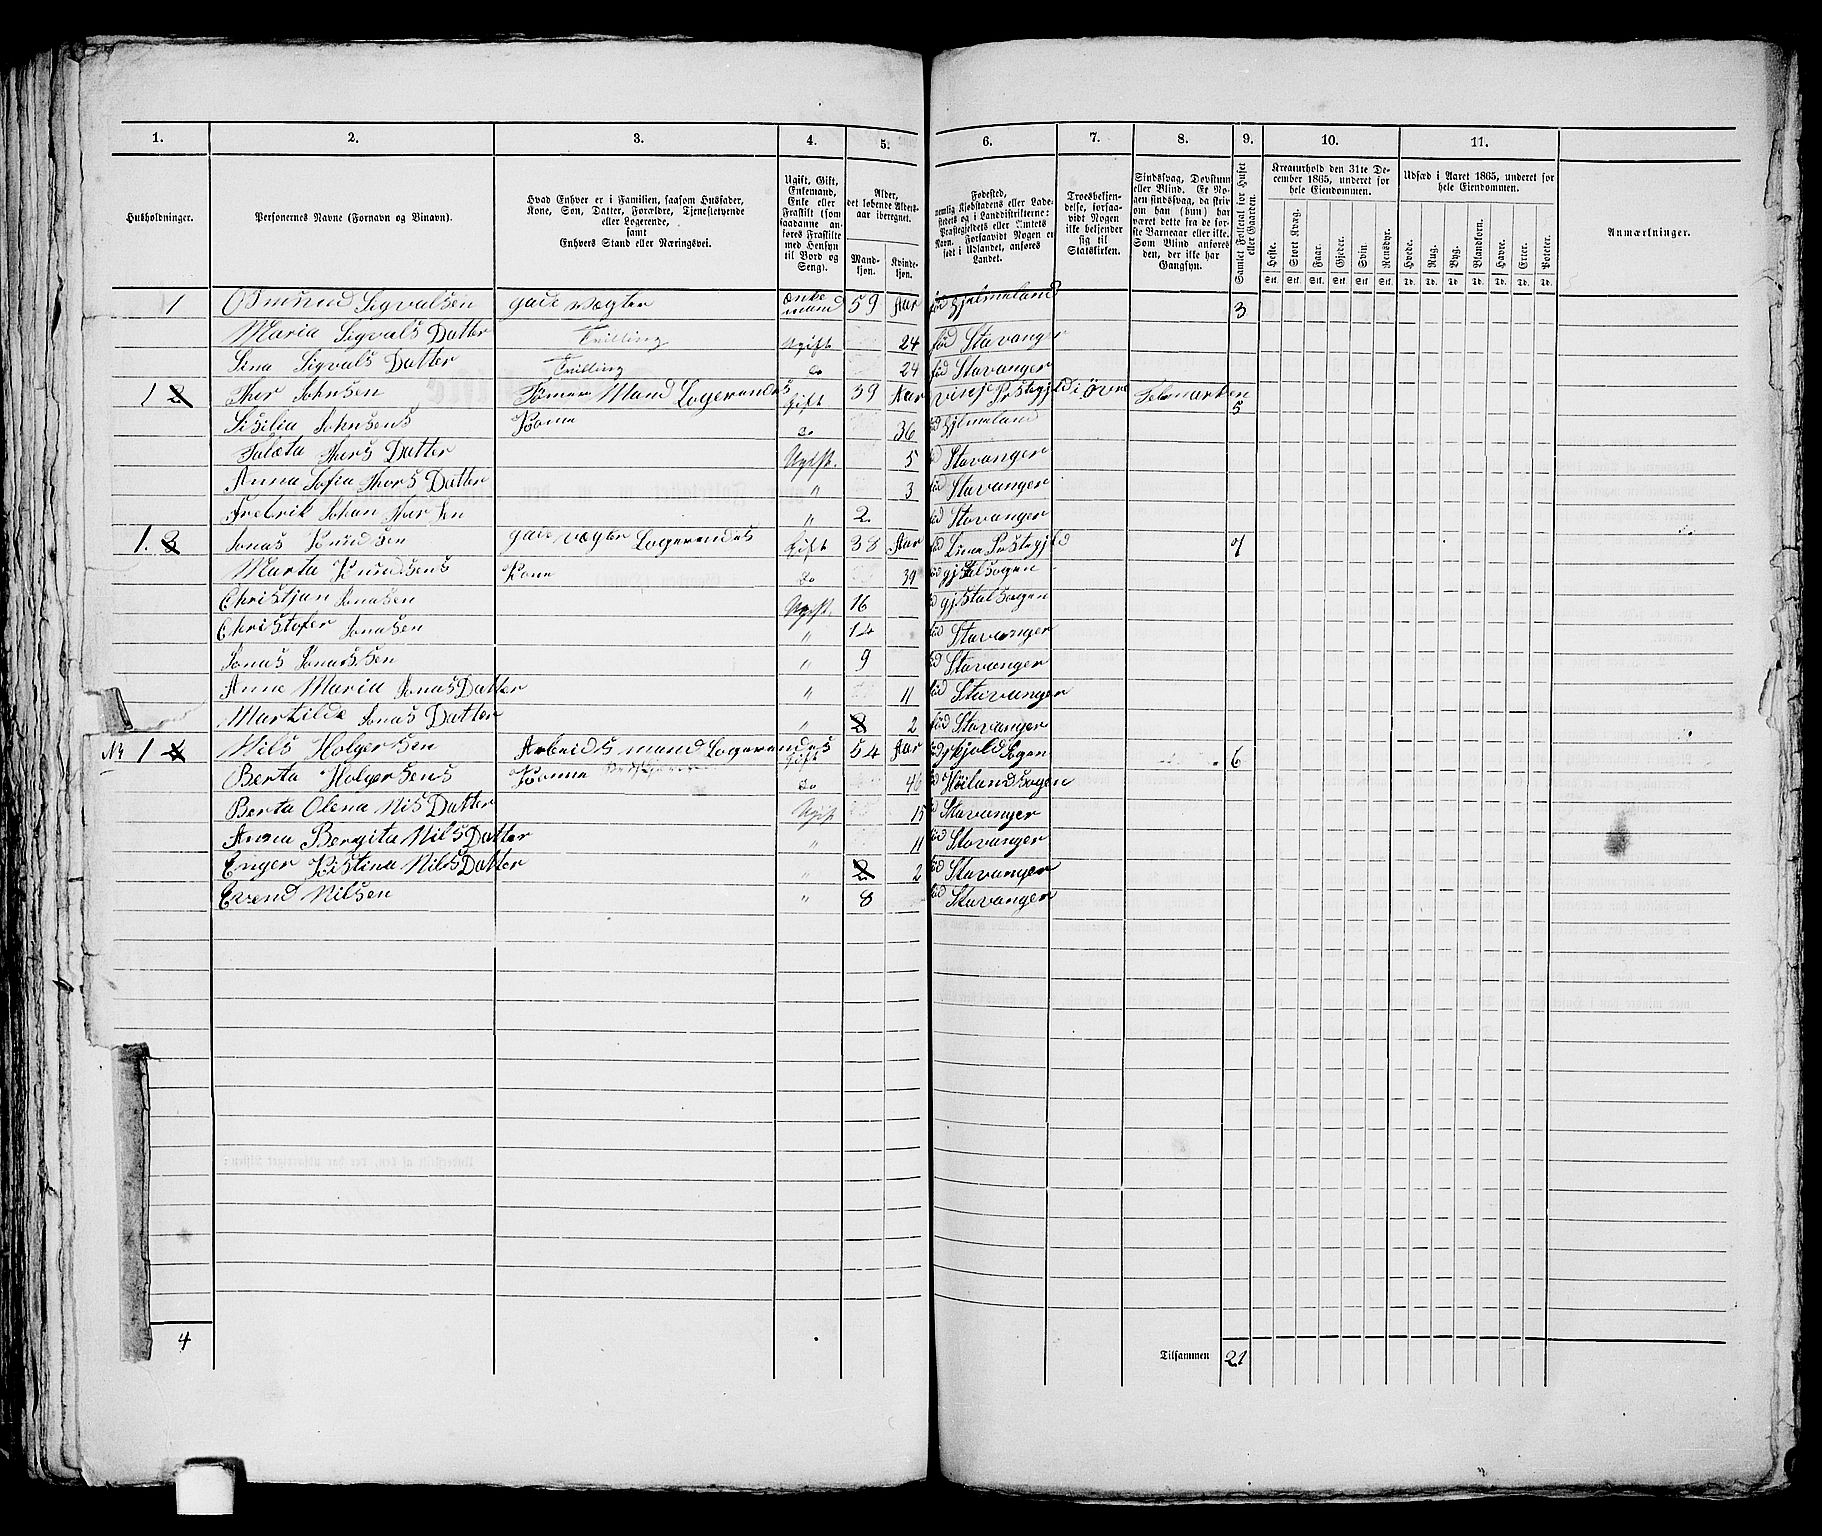 1. 2. 3. 4. 5. 6. 7. 8. 9. 10. 11.
Husholdninger.
Personernes Navne (Fornavn og Binavn).
Hvad Enhver er i Familien, saasom Husfader, Kone, Søn, Datter, Forældre, Tjenestetyende eller Logerende, samt Enhvers Stand eller Næringsvei.
Ugift, Gift, Enkemand, Enke eller Fraskilt (som saadanne anføres Fraskilte med Hensyn til Bord og Seng).
Alder, det løbende Alders-aar iberegnet.
Mand-kjøn. Kvinde-kjøn.
Fødested, nemlig Kjøbstadens eller Ladestedets og i Landdistrikterne: Præstegjeldets eller Amtets Navn. Forsaavidt Nogen er født i Udlandet, anføres Landet.
Troesbekjendelse, forsaavidt Nogen ikke bekjender sig til Statskirken.
Sindssvag, Døvstum eller Blind. Er Nogen sindssvag, da skrives om han (hun) har været dette fra de første Barneaar eller ikke. Som Blind anføres den, der ikke har Gangsyn.
Samlet Folketal for Huset eller Gaarden.
Kreaturhold den 31te December 1865, underet for hele Eiendommen.
Heste. Stort Kvæg. Faar. Gjeder. Svin. Rensdyr.
Udsæd i Aaret 1865, underet for hele Eiendommen.
Hvede. Rug. Byg. Blandkorn. Havre. Erter. Poteter.
Anmærkninger.
Stk. Stk. Stk. Stk. Stk. Stk. Td. Td. Td. Td. Td. Td. Td.
1 Osmund Sigvalsen gade Vægter Ænke mand 59 Aar fød Hjelmeland 3
Maria Sigvals Datter Tvilling Ugift 24 fød Stavanger
Sina Sigvals Datter Tvilling do 24 fød Stavanger
1 2 Thor Johnsen Tømer Mand Logerendes Gift 39 Aar Vinje Prstegjeld i øvre Telemarken 5
Sisilia Johnsens Kone do 36 Hjelmeland
Thors Datter Ugift. 5 Stavanger
Anna Sofia Thors Datter " 3 fød Stavanger
Fredrik Johan Thorsen " 2 fød Stavanger
1. 3 Jonas Knudsen gade Vægter Logerendes Gift 38 Aar fød Prstegjeld 7
Marta Knudsens Kone do 39 gjestalsogen
Christjan Jonasen Ugift. 16 gjstalsogen
Christofer Jonasen " 14 fød Stavanger
Jonas Jonassen " 9 Stavanger
Anne Maria Jonas Datter " 11 fød Stavanger
Martilde Jonas Datter " 2 2 fød Stavanger
1 4 Nils Holgersen Arbeids mand Logerendes Gift 54 Aar 6
Berta Holgersens Konne do 46 Høilandsogen
Berta Olena Nils Datter Ugift 15 Stavanger
Anna Bergita Nils Datter " 11 fød Stavanger
Enger Kistina Nils Datter " 2 2 fød Stavanger
Evend Nilsen " 8 fød Stavanger
4
Tilsammen 21